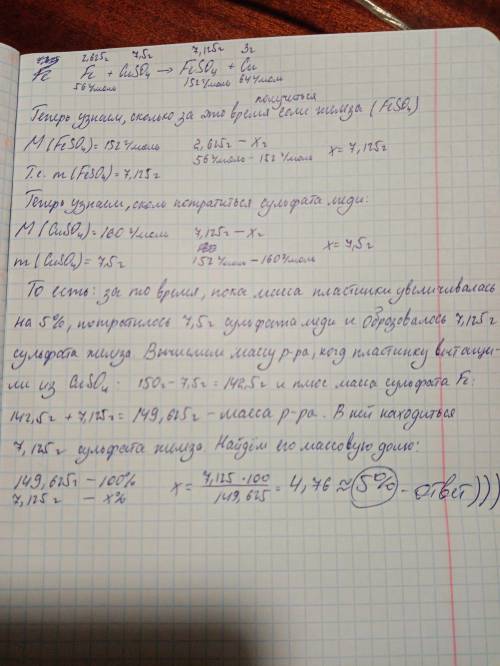 2,625г 7,5г 7,125г 3г
Fe + CuSO₄ → FeSO₄ + Cu
56 г/моль 152 г/моль 64 г/моль
получиться
Теперь узнаем, сколько за это время соли железа (FeSO₄)
M(FeSO₄) = 152 г/моль 2,625г – xг
56 г/моль – 152 г/моль x = 7,125г
Т.е. m(FeSO₄) = 7,125г
Теперь узнаем, сколь потратиться сульфата меди:
M(CuSO₄) = 160 г/моль 7,125г – xг
m(CuSO₄) = 7,5г 152 г/моль – 160 г/моль x = 7,5г
То есть: за то время, пока масса пластинки увеличивалась
на 5%, потратилось 7,5г сульфата меди и образовалось 7,125г
сульфата железа. Вычислим массу р-ра, когд пластинку вытащи-
ли из CuSO₄. 150г – 7,5г = 142,5г и плюс масса сульфата Fe:
142,5г + 7,125г = 149,625г – масса р-ра. В ней находиться
7,125г сульфата железа. Найдём его массовую долю:
149,625г – 100%
7,125г – x%
x = 7,125 · 100 / 149,625 = 4,76 ≈ 5% – ответ)))